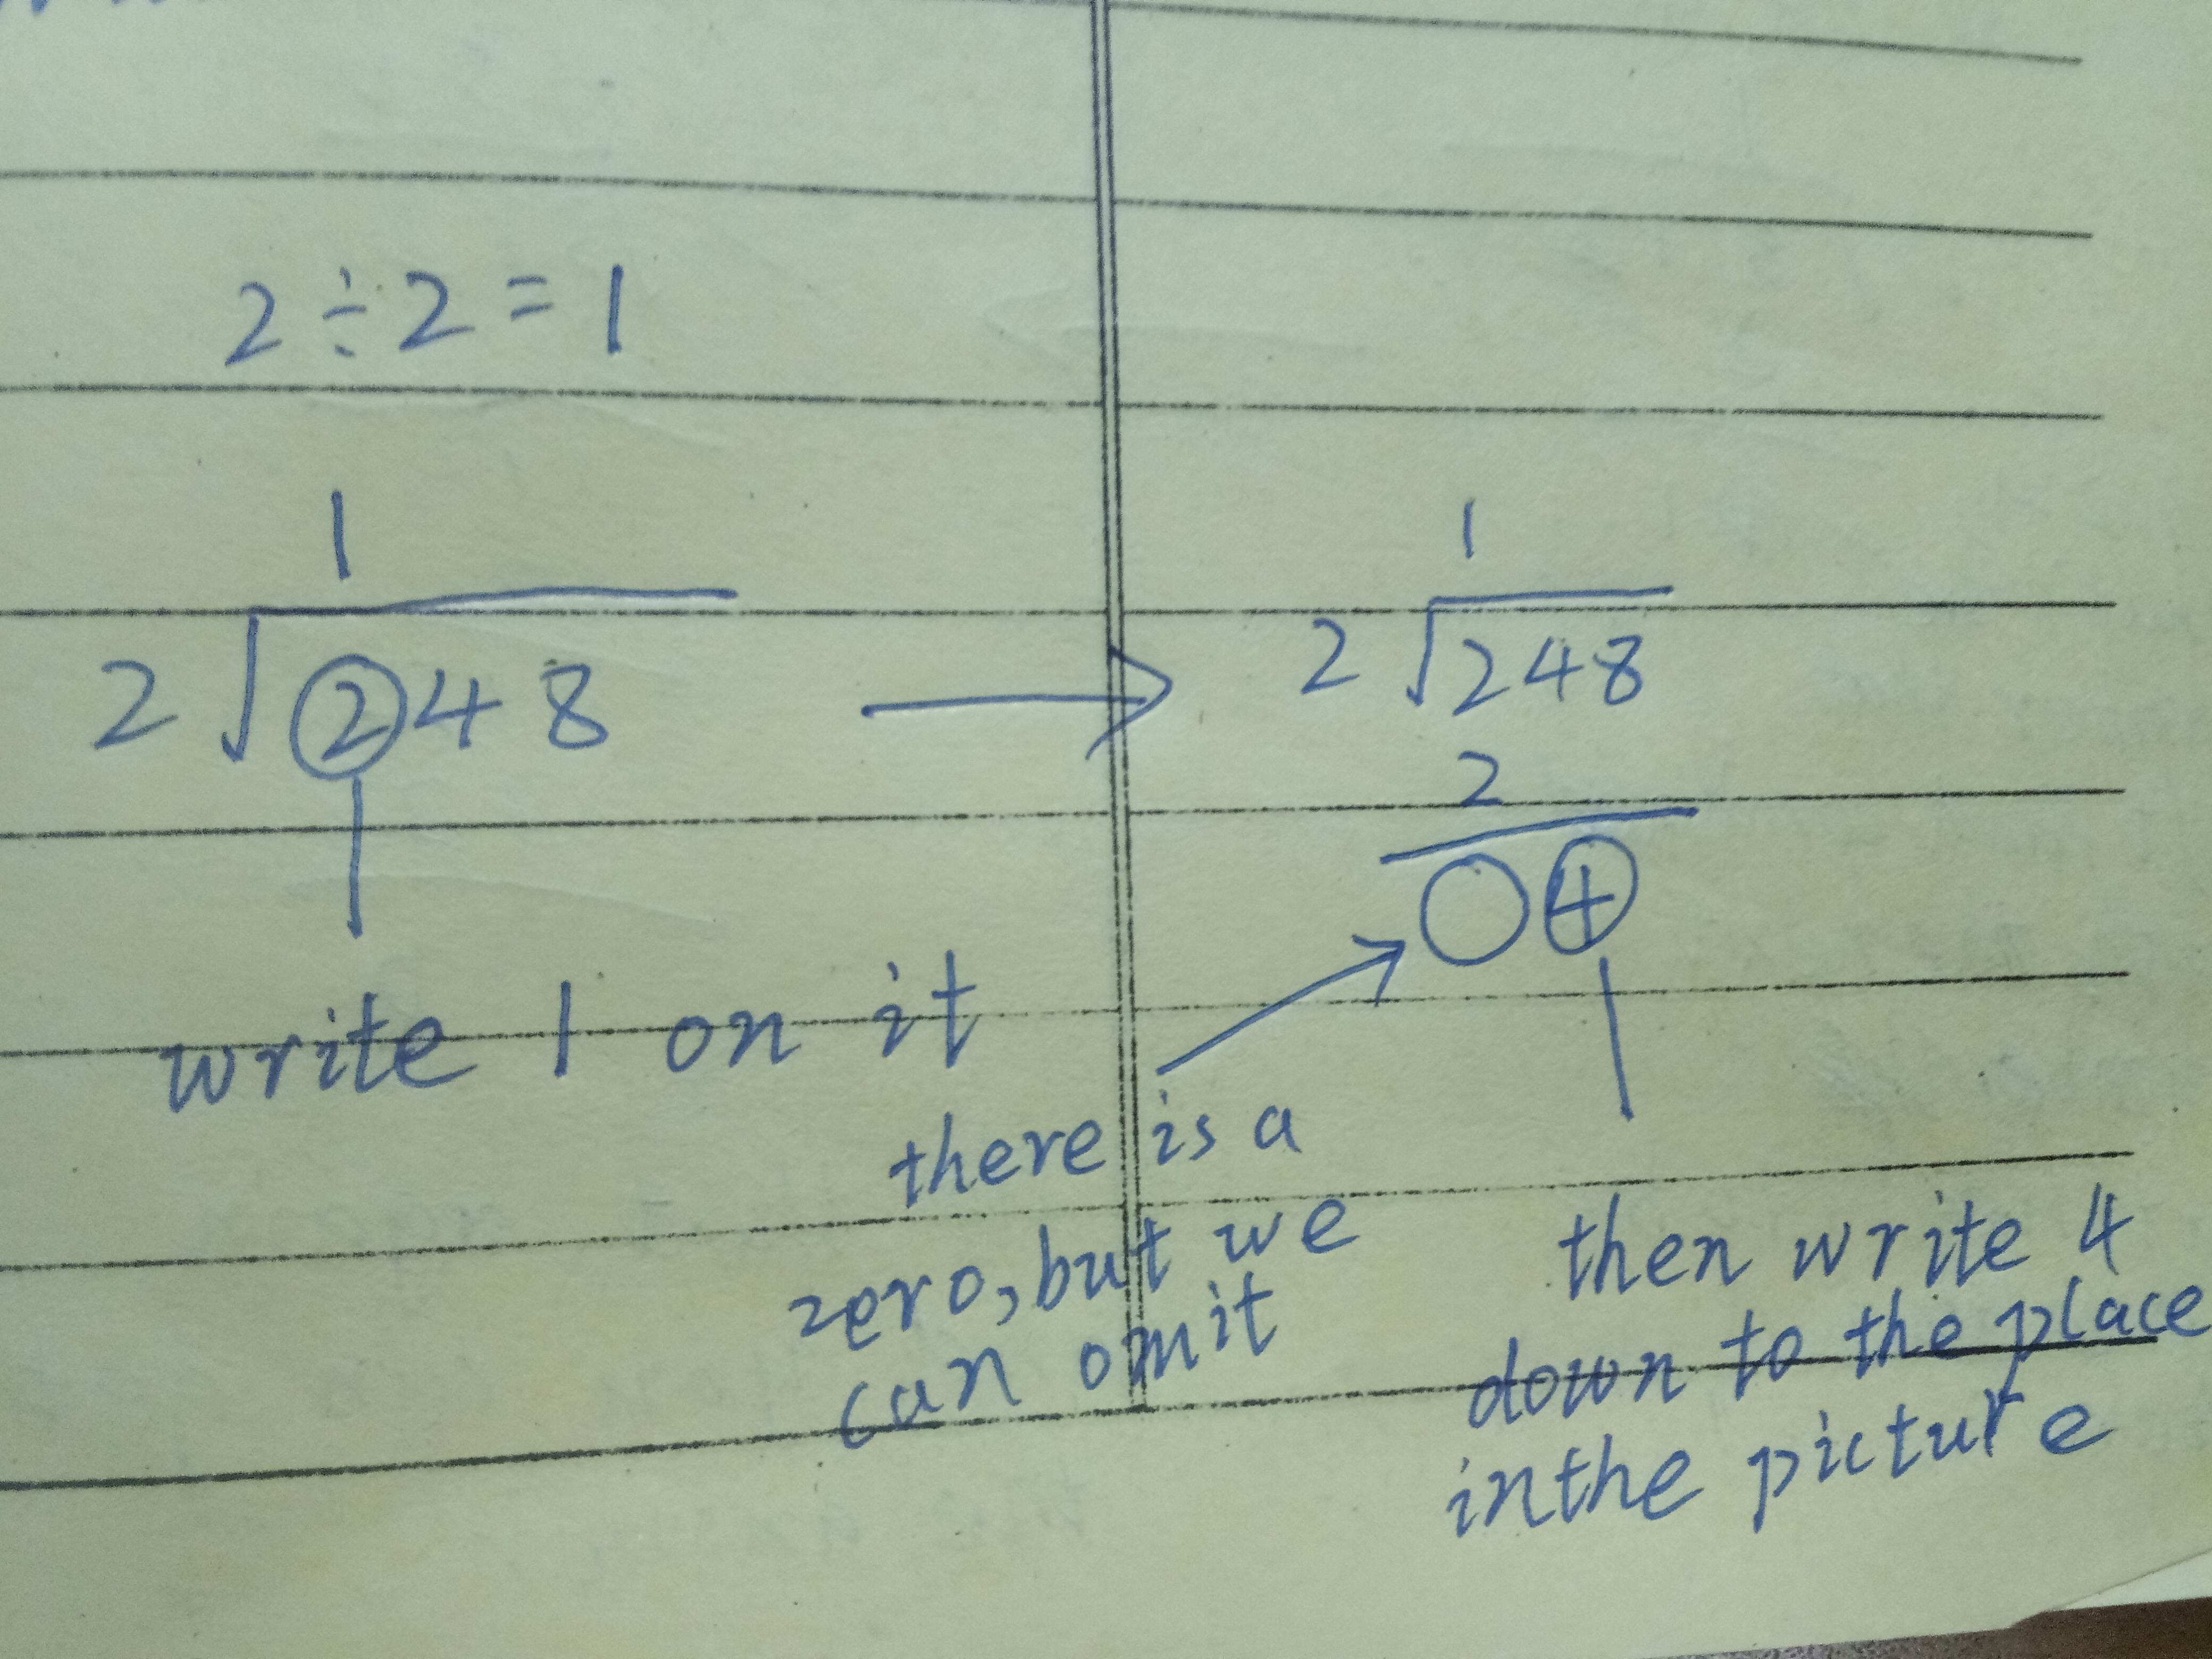 2÷2=1
1
2√248
write 1 on it
1
2√248
2
4
there is a
zero, but we
can omit
then write 4
down to the place
inthe picture